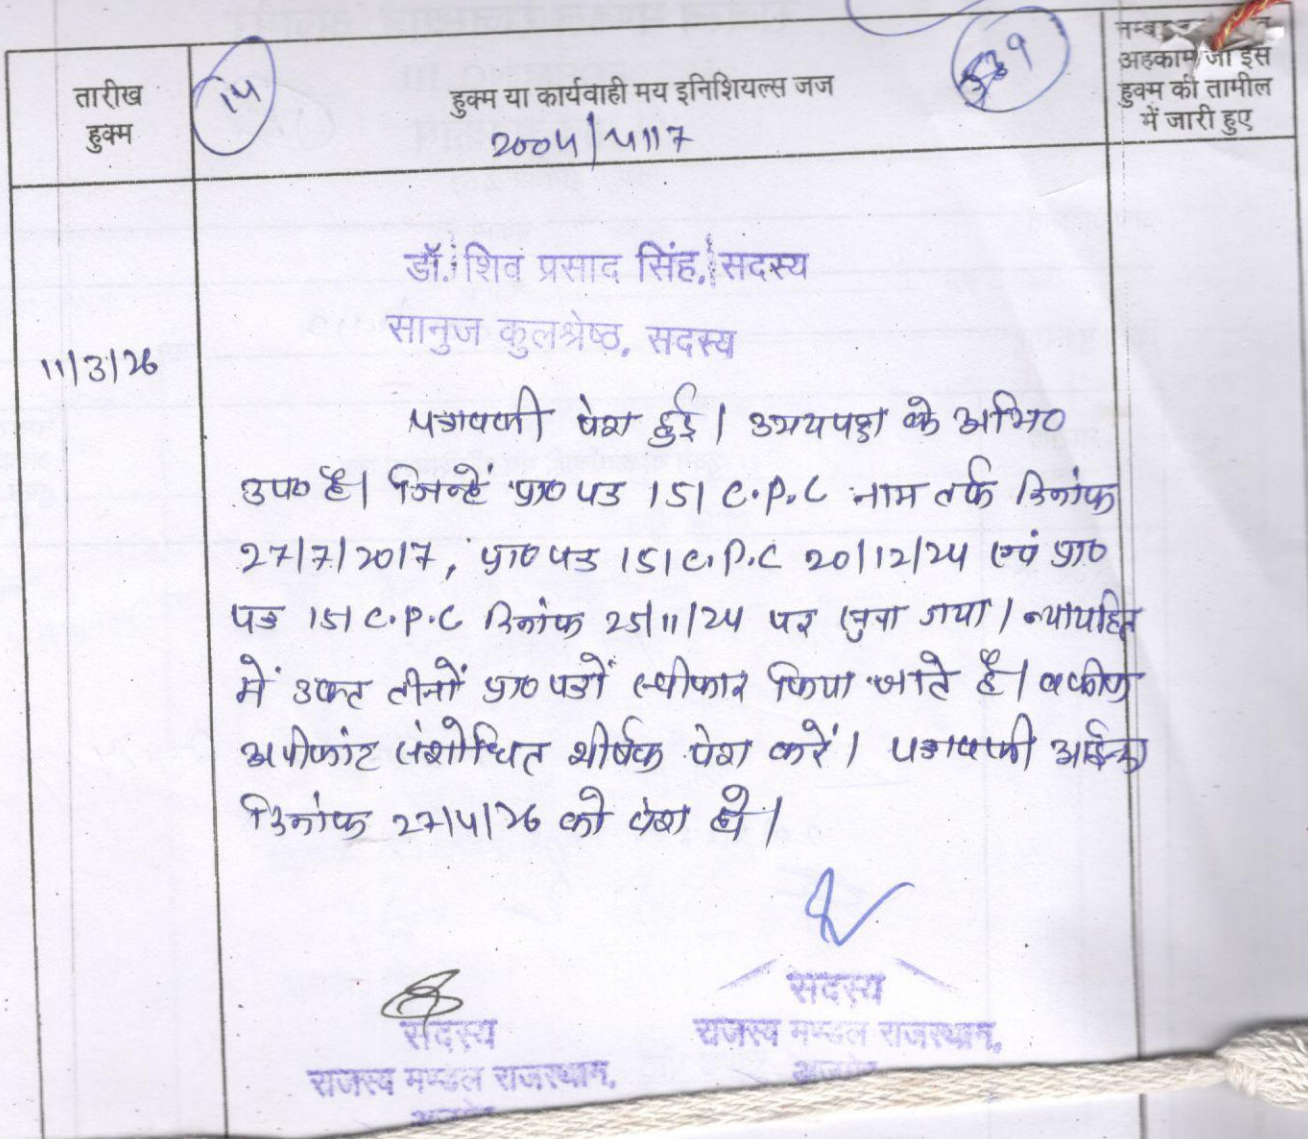 तारीख
हुक्म
14
हुक्म या कार्यवाही मय इनिशियल्स जज
2004/4117
539
अहकाम जो इस
हुक्म की तामील
में जारी हुए
डॉ. शिव प्रसाद सिंह, सदस्य
सानुज कुलश्रेष्ठ, सदस्य
11/3/26
पत्रावली पेश हुई। उभयपक्ष के अभि०
उप० है। जिन्हें प्रा० पत्र 151 C.P.C नाम तर्क दिनांक
27/7/2017, प्रा० पत्र 151 C.P.C 20/12/24 एवं प्रा०
पत्र 151 C.P.C दिनांक 25/11/24 पर सुना गया। न्यायहित
में उक्त तीनों प्रा० पत्रों स्वीकार किया जाते है। वकील
अपीलांट संशोधित शीर्षक पेश करें। पत्रावली आईन्दा
दिनांक 27/4/26 को पेश हो।
सदस्य
राजस्व मण्डल राजस्थान,
अजमेर
सदस्य
राजस्व मण्डल राजस्थान,
अजमेर